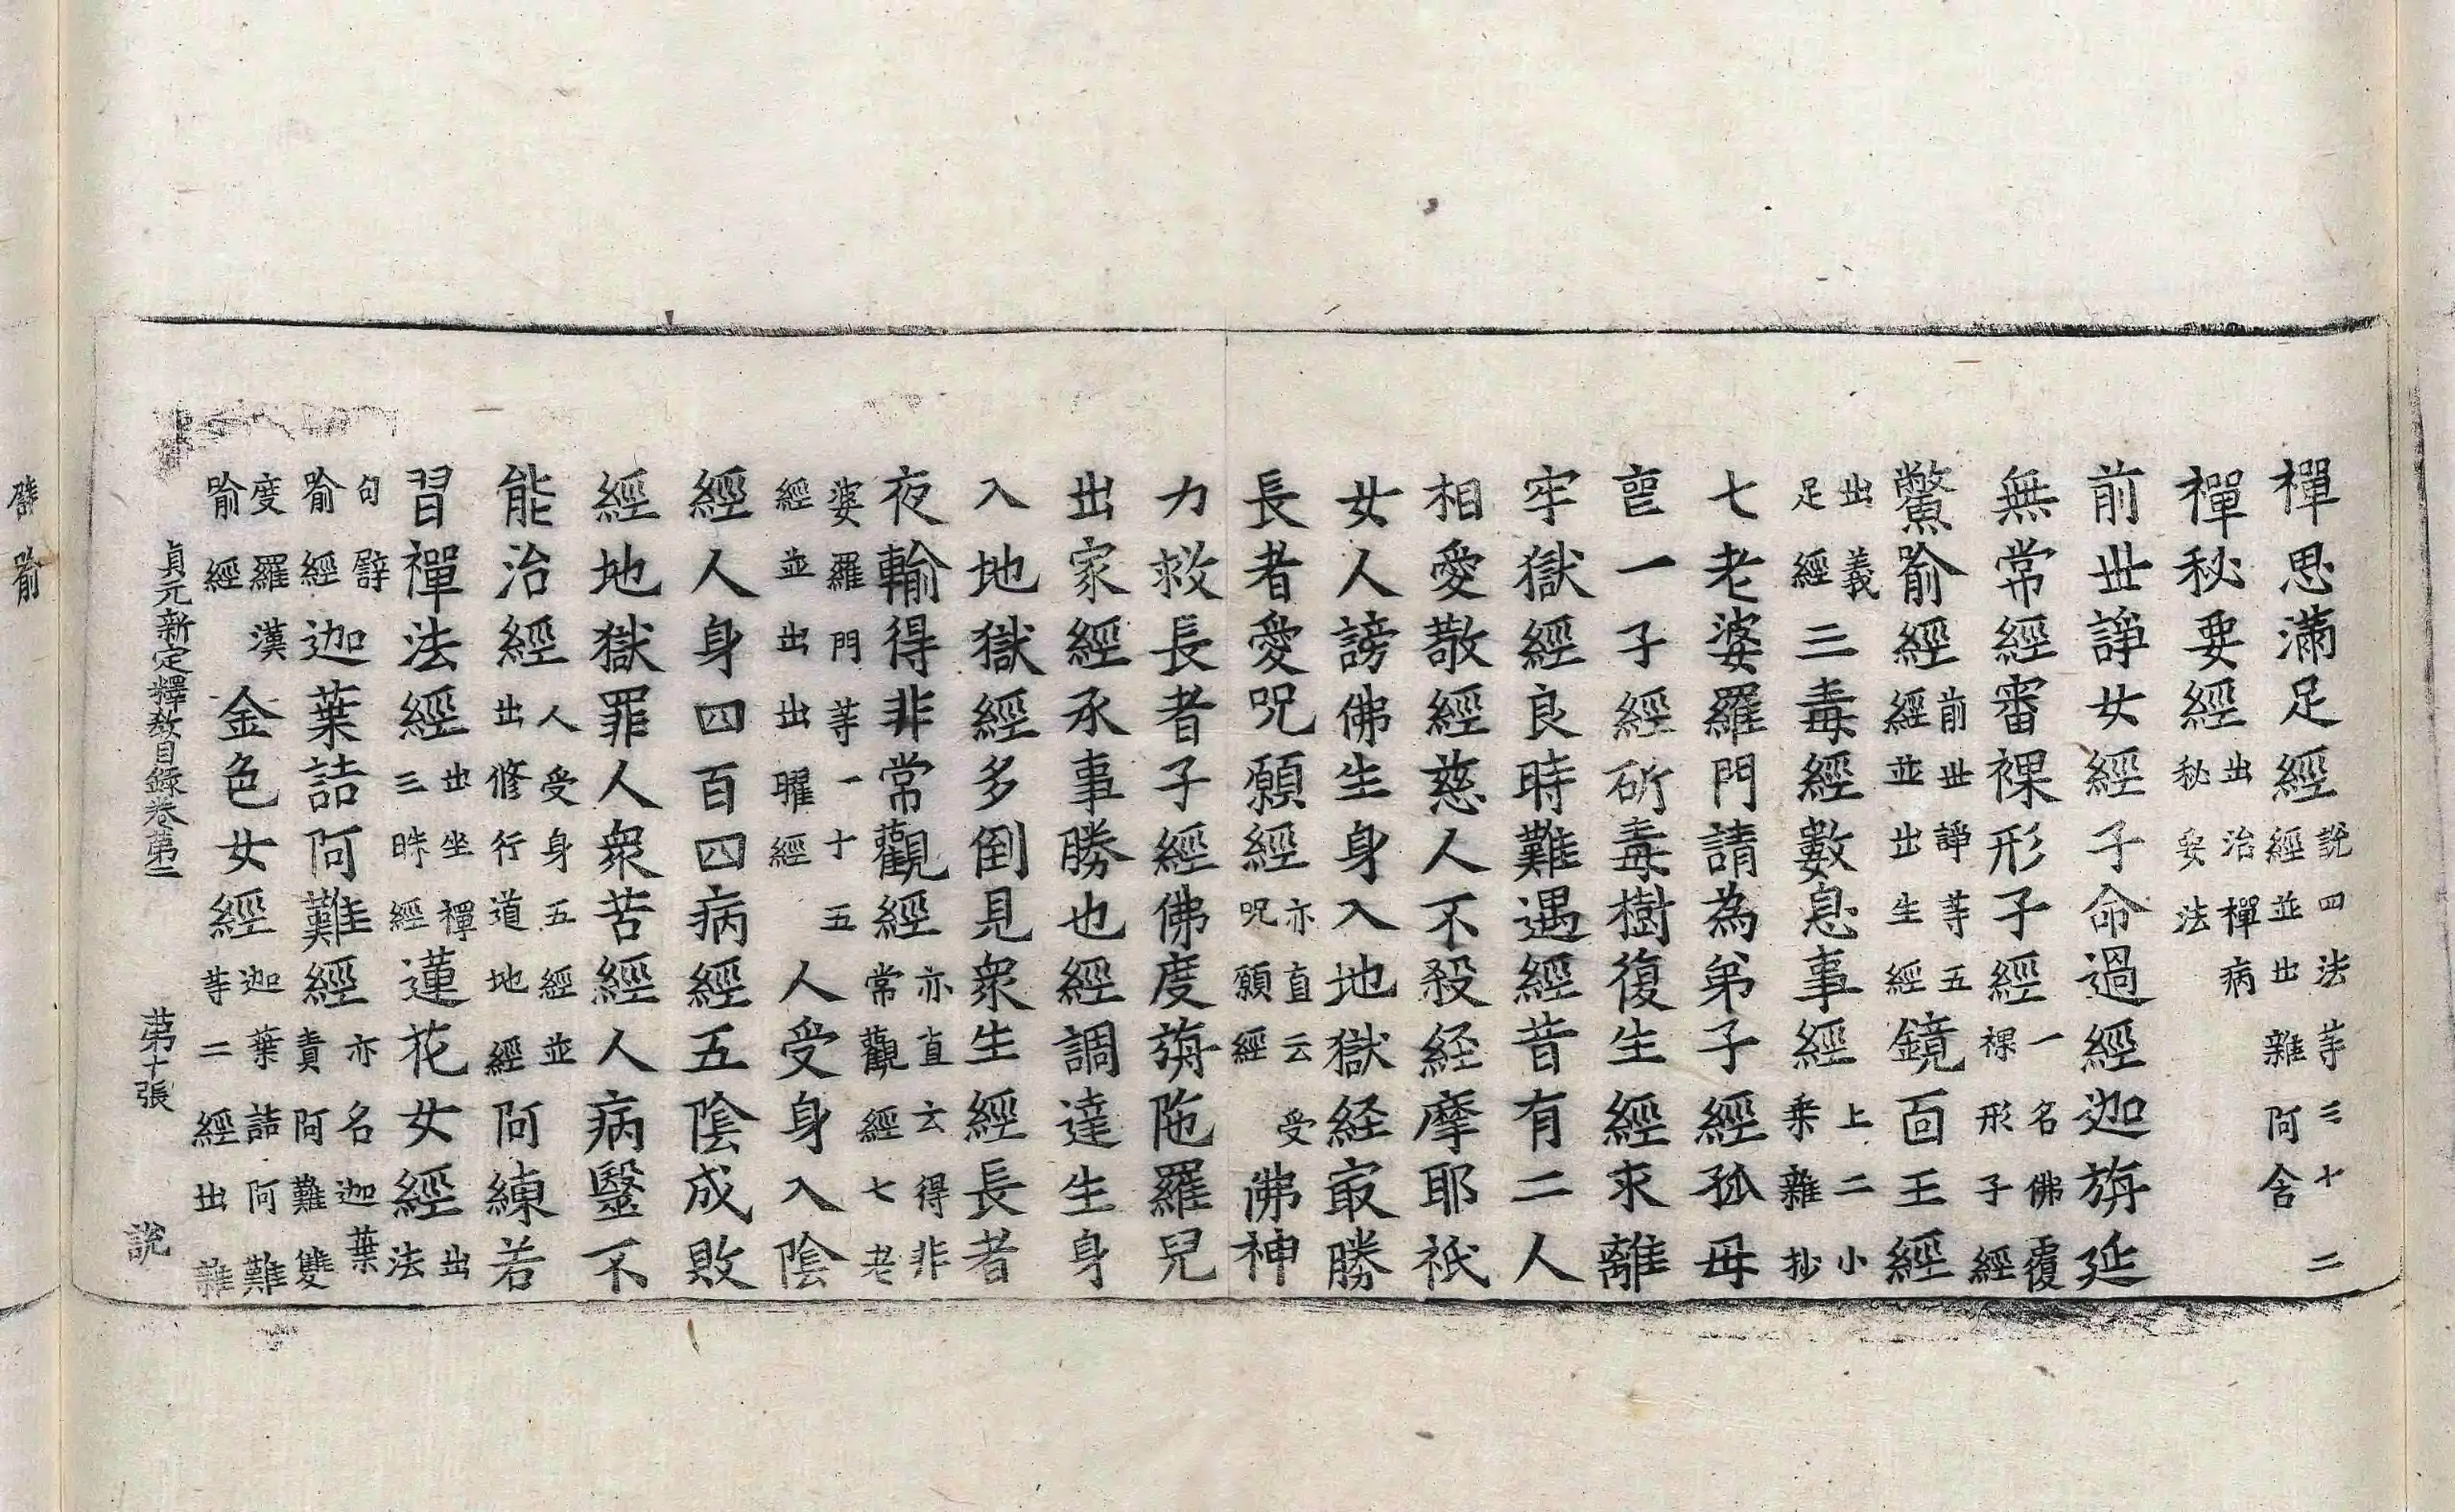 禪思滿足經說四法等三十二經並出雜阿含
禪秘要經出治禪病秘要法
前世諍女經子命過經迦旃延
無常經審裸形子經一名佛覆裸形子經
鱉喻經前世諍等五經並出生經鏡面王經
出義足經三毒經數息事經上二小乘雜抄
七老婆羅門請為弟子經孤母
喪一子經斫毒樹復生經求離
牢獄經良時難遇經昔有二人
相愛敬經慈人不殺経摩耶祇
女人謗佛生身入地獄経㝡勝
長者愛呪願經亦直云受呪願經佛神
力救長者子經佛度旃陁羅兒
出家經承事勝也經調達生身
入地獄經多倒見衆生經長者
夜輸得非常觀經亦直云得非常觀經七老
婆羅門等一十五經並出出曜經人受身入陰
經人身四百四病經五陰成敗
經地獄罪人衆苦經人病毉不
能治經人受身五經並出修行道地經阿練若
習禪法經出坐禪三昧經蓮花女經出法
句辟喻經迦葉詰阿難經亦名迦葉責阿難雙
度羅漢喻經金色女經迦葉詰阿難等二經出雜
貞元新定釋教目錄卷第二 第十張 說
譬喻